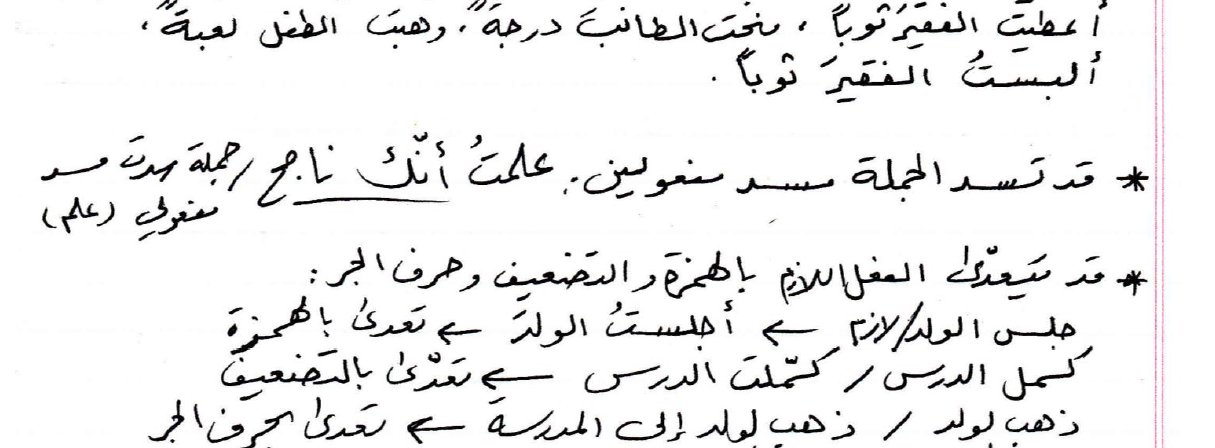 أعطيتُ الفقيرَ ثوباً ، منحتُ الطالبَ درجةً ، وهبتُ الطفل لعبةً ،
ألبستُ الفقيرَ ثوباً .
* قد تسد الجملة مسد مفعولين . علمتُ أنّك ناجح / جملة سدت مسد
مفعولي (علم)
* قد يتعدّى الفعل اللازم بالهمزة والتضعيف وحرف الجر :
جلس الولد/لازم ← أجلستُ الولدَ ← تعدى بالهمزة
كمل الدرس / كمّلت الدرس ← تعدّى بالتضعيف
ذهب لولد / ذهب لولد إلى المدرسة ← تعدى بحرف الجر